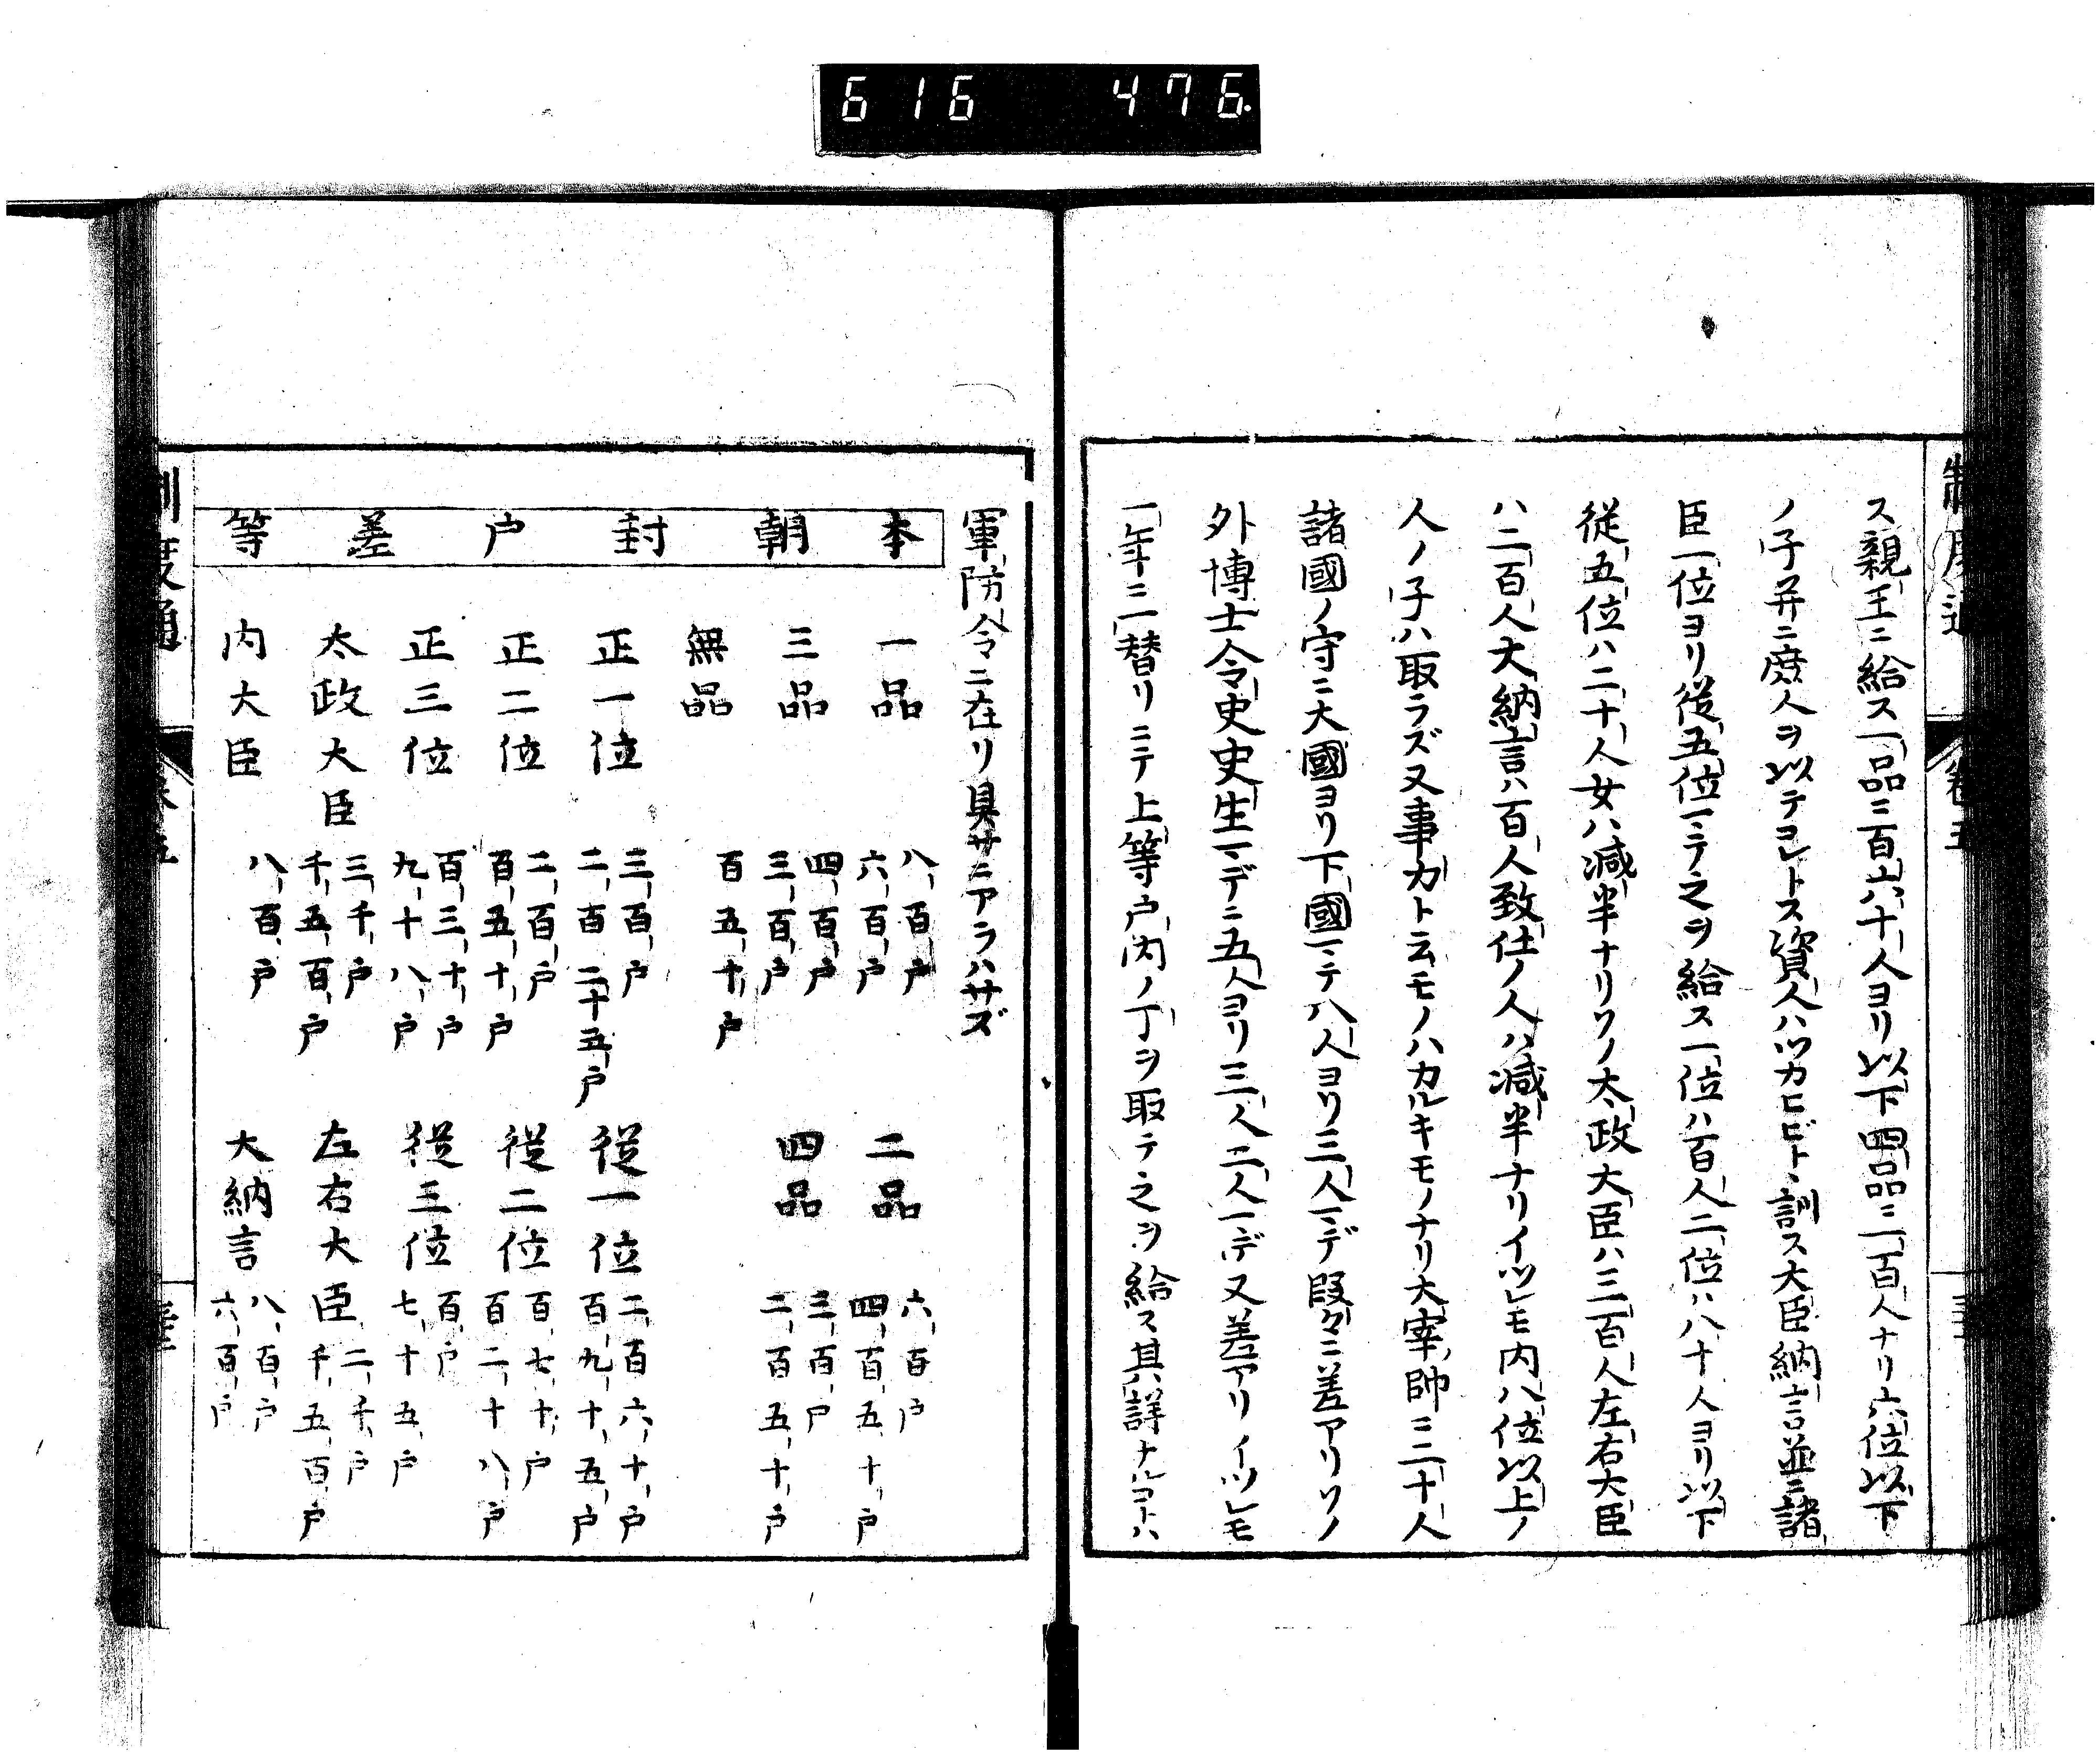 616 476.
ス親王ニ給ス一品ニ百六十人ヨリ以下四品ニ百人ナリ六位以下
ノ子幷ニ庶人ヲ以テヨシトス資人ハツカヒビトヽ訓ス大臣納言並ニ諸
臣一位ヨリ従五位マテ之ヲ給ス一位ハ百人二位ハ八十人ヨリ以下
従五位ハ二十人女ハ減半ナリソノ太政大臣ハ三百人左右大臣
ハ二百人大納言ハ百人致仕ノ人ハ減半ナリイツレモ内八位以上ノ
人ノ子ハ取ラズ又事力ト云モノハカルキモノナリ大宰帥ニ二十人
諸國ノ守ニ大國ヨリ下國マテ八人ヨリ三人マデ段々ニ差アリソノ
外博士令史史生マデニ五人ヨリ三人二人マデ又差アリイツレモ
一年ニ一替リニテ上等戸内ノ丁ヲ取テ之ヲ給ス其詳ナルコトハ
軍防令ニ在リ具サニアラハサズ
本朝封戸差等
一品 八百戸 六百戸 二品 六百戸 四百五十戸
三品 四百戸 三百戸 四品 三百戸 二百五十戸
無品 百五十戸
正一位 三百戸 二百二十五戸 従一位 二百六十戸 百九十五戸
正二位 二百戸 百五十戸 従二位 百七十戸 百二十八戸
正三位 百三十戸 九十八戸 従三位 百戸 七十五戸
太政大臣 三千戸 千五百戸 左右大臣 二千戸 千五百戸
内大臣 八百戸 大納言 八百戸 六百戸